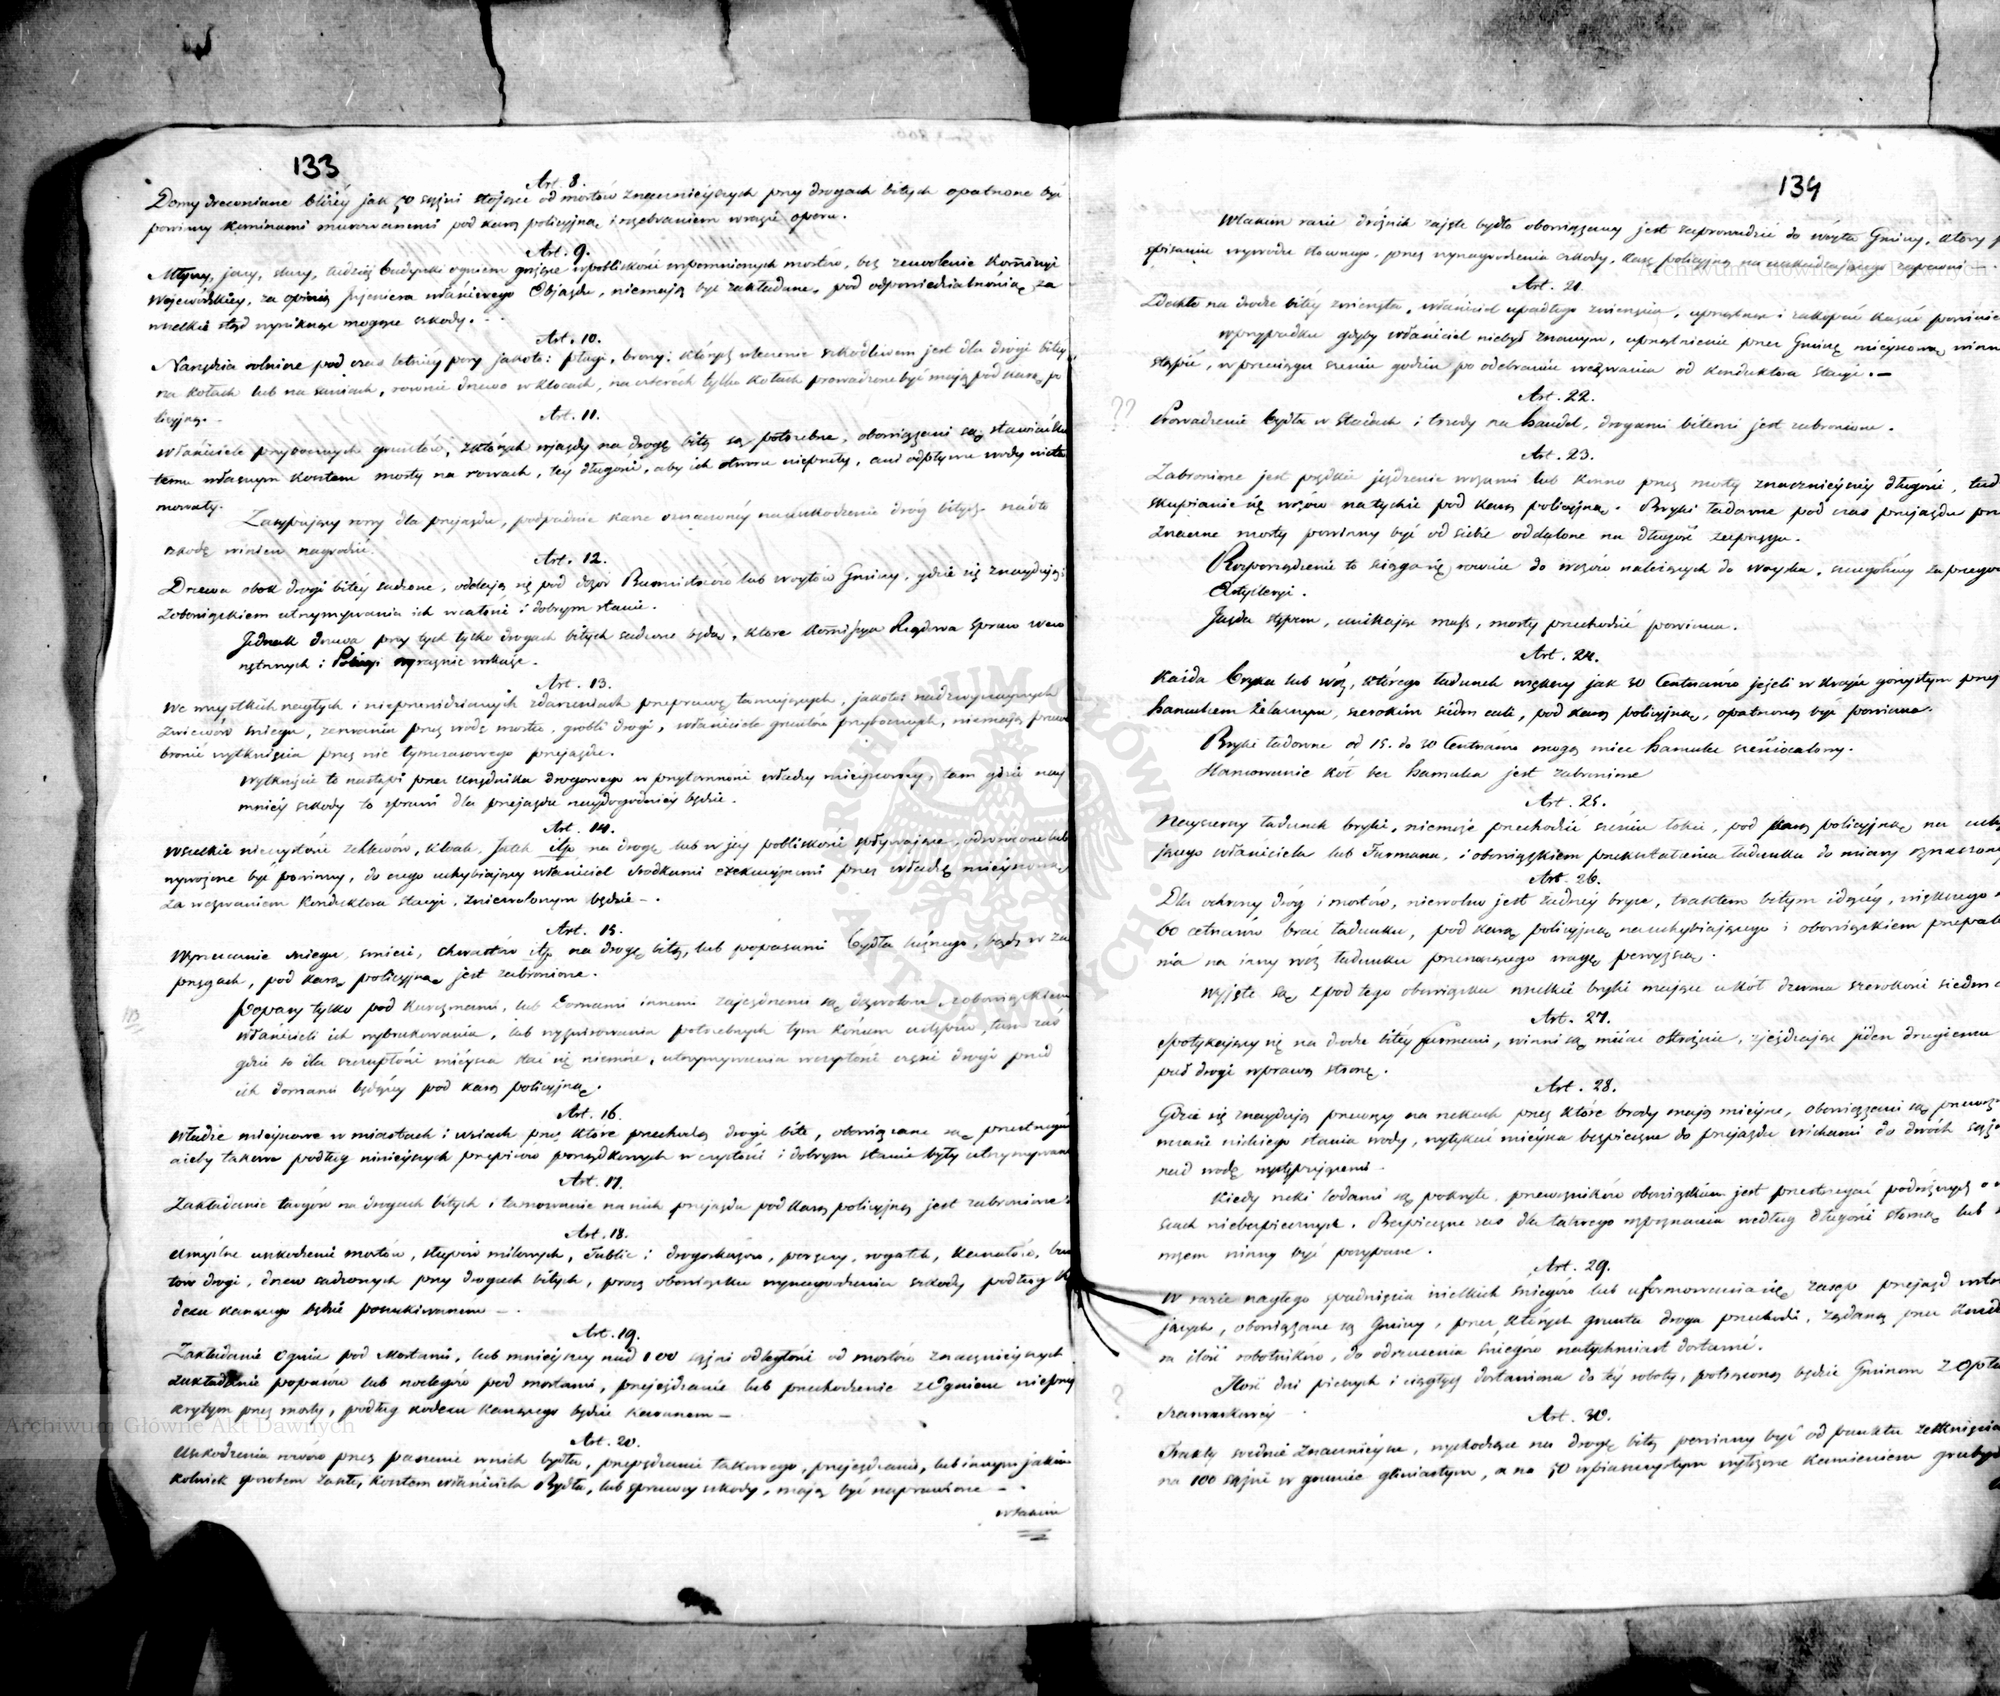 133
Art. 8.
Domy drewniane bliżéy jak 50 sążni stojące od mostów znacznieyszych przy drogach bitych opatrzone być
powinny kominami murowanemi pod karą policyjną i rozebraniem w razie oporu.
Art. 9.
Młyny, jazy, tudzież budynki ogniem w pobliskości wspomnionych mostów, bez zezwolenia Kommissyi
Wojewódzkiey, za opinią Inżeniera właściwego Objazdu, niemają być zakładane, pod odpowiedzialnością za
wszelkie stąd wyniknąć mogące szkody.
Art. 10.
Narzędzia rolnicze pod czas letniéy pory jakoto: pługi, brony; których wleczenie szkodliwem jest dla drogi bitéy
na kołach lub na saniach, równie drzewo w klocach, na czterech tylko kołach prowadzone być mają pod karą po
licyjną.
Art. 11.
Właściciele przybocznych gruntów, z których wjazdy na drogę bitą są potrzebne, obowiązani są stawiać
temu własnym kosztem mosty na rowach, téy długości, aby ich otworu niepsuły, ani odpływu wody nieta
mowały.
Zasypujący rowy dla przejazdu, podpadnie karze oznaczonéy na uszkodzenie dróg bitych nadto
szkodę winien nagrodzić.
Art. 12.
Drzewa obok drogi bitéy sadzone, oddają się pod dozór Burmistrzów lub Woytów Gminy, gdzie się znaydują z
zobowiązkiem utrzymywania ich w całości i dobrym stanie.
Jednak drzewa przy tych tylko drogach bitych sadzone będą, które Kommissya Rządowa Spraw Wew
nętrznych i Policyi wyraźnie wskaże.
Art. 13.
We wszystkich nagłych i nieprzewidzianych zdarzeniach przeprawę tamujących, jakoto: nadzwyczaynych
zawiewów śniegu, zerwania przez wodę mostu, grobli drogi, właściciele gruntów przybocznych, niemają prawa
bronić wytknięcia przez nie tymczasowego przejazdu.
Wytknięcie to nastąpi przez Urzędnika drogowego w przytomności władzy mieyscowéy, tam gdzie nay
mniéy szkody to sprawi dla przejazdu naydogodniéy będzie.
Art. 14.
Wszelkie nieczystości zchlewów, kloak, jatek itp. na drogę lub w jéy pobliskość spływające, odwrócone lub
wywożone być powinny, do czego uchybiający właściciel środkami exekucyjnemi przez władzę mieyscową,
za wezwaniem Konduktora stacyi, zniewolonym będzie.
Art. 15.
Wyrzucanie śniegu, śmieci, chwastów itp. na drogę bitą, lub popasanie bydła luźnego, bądź w za
przęgach, pod karą policyjną jest zabronione.
Popasy tylko pod karczmami, lub Domami innemi zajezdnemi są dozwolone z zobowiązkiem
właścicieli ich wybrukowania, lub wyżwirowania potrzebnych tym końcem ustępów, tam zaś
gdzie to dla szczupłości mieysca stać się niemoże, utrzymywania w czystości części drogi przed
ich domami będącéy pod karą policyjną.
Art. 16
Władze mieyscowe w miastach i wsiach przez które przechodzą drogi bite, obowiązane są przestrzegać
ażeby takowe podług ninieyszych przepisów porządkowych w czystości i dobrym stanie były utrzymywane
Art. 17.
Zakładanie targów na drogach bitych i tamowanie na nich przejazdu pod karą policyjną jest zabronione.
Art. 18.
Umyślne uszkodzenie mostów, słupów milowych, tablic i drogoskazów, poręczy, rogatek, kanałów, bru
ków drogi, drzew sadzonych przy drogach bitych, prócz obowiązku wynagrodzenia szkody podług Ko
dexu karzącego będzie poszukiwanem.
Art. 19.
Zakładanie Ognia pod Mostami, lub mnieyszéy nad 100 sążni odległości od mostów znacznieyszych
zakładanie popasów lub noclegów pod mostami, przejeżdzanie lub przechodzenie z Ogniem nieprzy
krytym przez mosty, podług kodexu karzącego będzie karanem.
Art. 20.
Uszkodzenia rowów przez pasenie w nich bydła, przepędzanie takowego, przejeżdzanie, lub innym jakim
kolwiek sposobem zaszłe, kosztem właściciela Bydła, lub sprawcy szkody, mają być naprawione.
W takim
134
W takim razie dróżnik zajęte bydło obowiązany jest zaprowadzić do wóyta Gminy, który po
spisaniu wywodu słownego, prócz wynagrodzenia szkody, karę policyjną na uszkadzającego zapewni.
Art. 21.
Zdechłe na drodze bitéy zwierzęta, właściciel upadłego zwierzęcia, uprzątnąć i zakopać kazać powinien
W przypadku gdyby właściciel niebył znanym, uprzątnienie przez Gminę mieyscową winno
stąpić, w przeciągu sześciu godzin po odebraniu wezwania od Konduktora stacyi.
Art. 22.
?? Prowadzenie bydła w stadach i trzody na handel, drogami bitemi jest zabronione.
Art. 23.
Zabronione jest prędkie jeżdżenie wozami lub konno przez mosty znacznieyszéy długości, tud
skupianie się wozów na tychże pod karą policyjną. Bryki ładowne pod czas przejazdu prz
znaczne mosty powinny być od siebie oddalone na długość zaprzęgu.
Rozporządzenie to ściąga się równie do wozów należących do woyska, szczególniéy zaprzęgów
Artylleryi.
Jazda stępem, unikając mass, mosty przechodzić powinna.
Art. 24.
Każda bryka lub wóz, którego ładunek większy jak 30 Centnarów jeżeli w kraju górzystym przej
hamulcem żelaznym, szerokim siedm cali, pod karą policyjną, opatrzoną być powinna.
Bryki ładowne od 15. do 30 Centnarów mogą mieć hamulec sześciocalowy.
Hamowanie kół bez hamulca jest zabronione
Art. 25.
Nayszerszy ładunek bryki, niemoże przechodzić sześciu łokci, pod karą policyjną na uchy
jącego właściciela lub Furmana, i obowiązkiem przekształcenia ładunku do miary oznaczonéy
Art. 26.
Dla ochrony dróg i mostów, niewolno jest żadnéy bryce, traktem bitym idącéy, większego nad
60 cetnarów brać ładunku, pod karą policyjną na uchybiającego i obowiązkiem przepako
nia na inny wóz ładunku przenoszącego wagę powyższą.
Wyjęte są z pod tego obowiązku wszelkie bryki mające u kół dzwona szerokości siedm c
Art. 27.
Spotykający się na drodze bitéy furmani, winni są mijać ostrożnie, zjeżdżając jeden drugiemu
pół drogi w prawą stronę.
Art. 28.
Gdzie się znaydują przewozy na rzekach przez które brody mają mieysce, obowiązani są przewoź
w czasie niskiego stanu wody, wytykać mieysca bezpieczne do przejazdu wichami do dwóch sążni
nad wodę występującemi.
Kiedy rzeki lodami są pokryte, przewoźników obowiązkiem jest przestrzegać podróżnych o
scach niebezpiecznych. Bezpieczne zaś dla łatwego rozpoznania według długości słomą lub
wozem winny być posypane.
Art. 29.
W razie nagłego spadnięcia wielkich śniegów lub uformowania się zasp przejazd wstrzy
jących, obowiązane są Gminy, przez których grunta droga przechodzi, żądaną przez Kond
ra ilość robotników, do odrzucenia śniegów natychmiast dostawić.
? Ilość dni pieszych i ciągłych dostawiona do téy roboty, potrącona będzie Gminom z Opła
Szarwarkowéy
Art. 30.
Trakty średnie znacznieysze, wychodzące na drogę bitą powinny być od punktu zetknięcia
na 100 sążni w gruncie gliniastym, a na 50 w piaszczystym wyłożone kamieniem grubym
Archiwum Główne Akt Dawnych
Archiwum Główne Akt Dawnych
ARCHIWUM GŁÓWNE AKT DAWNYCH